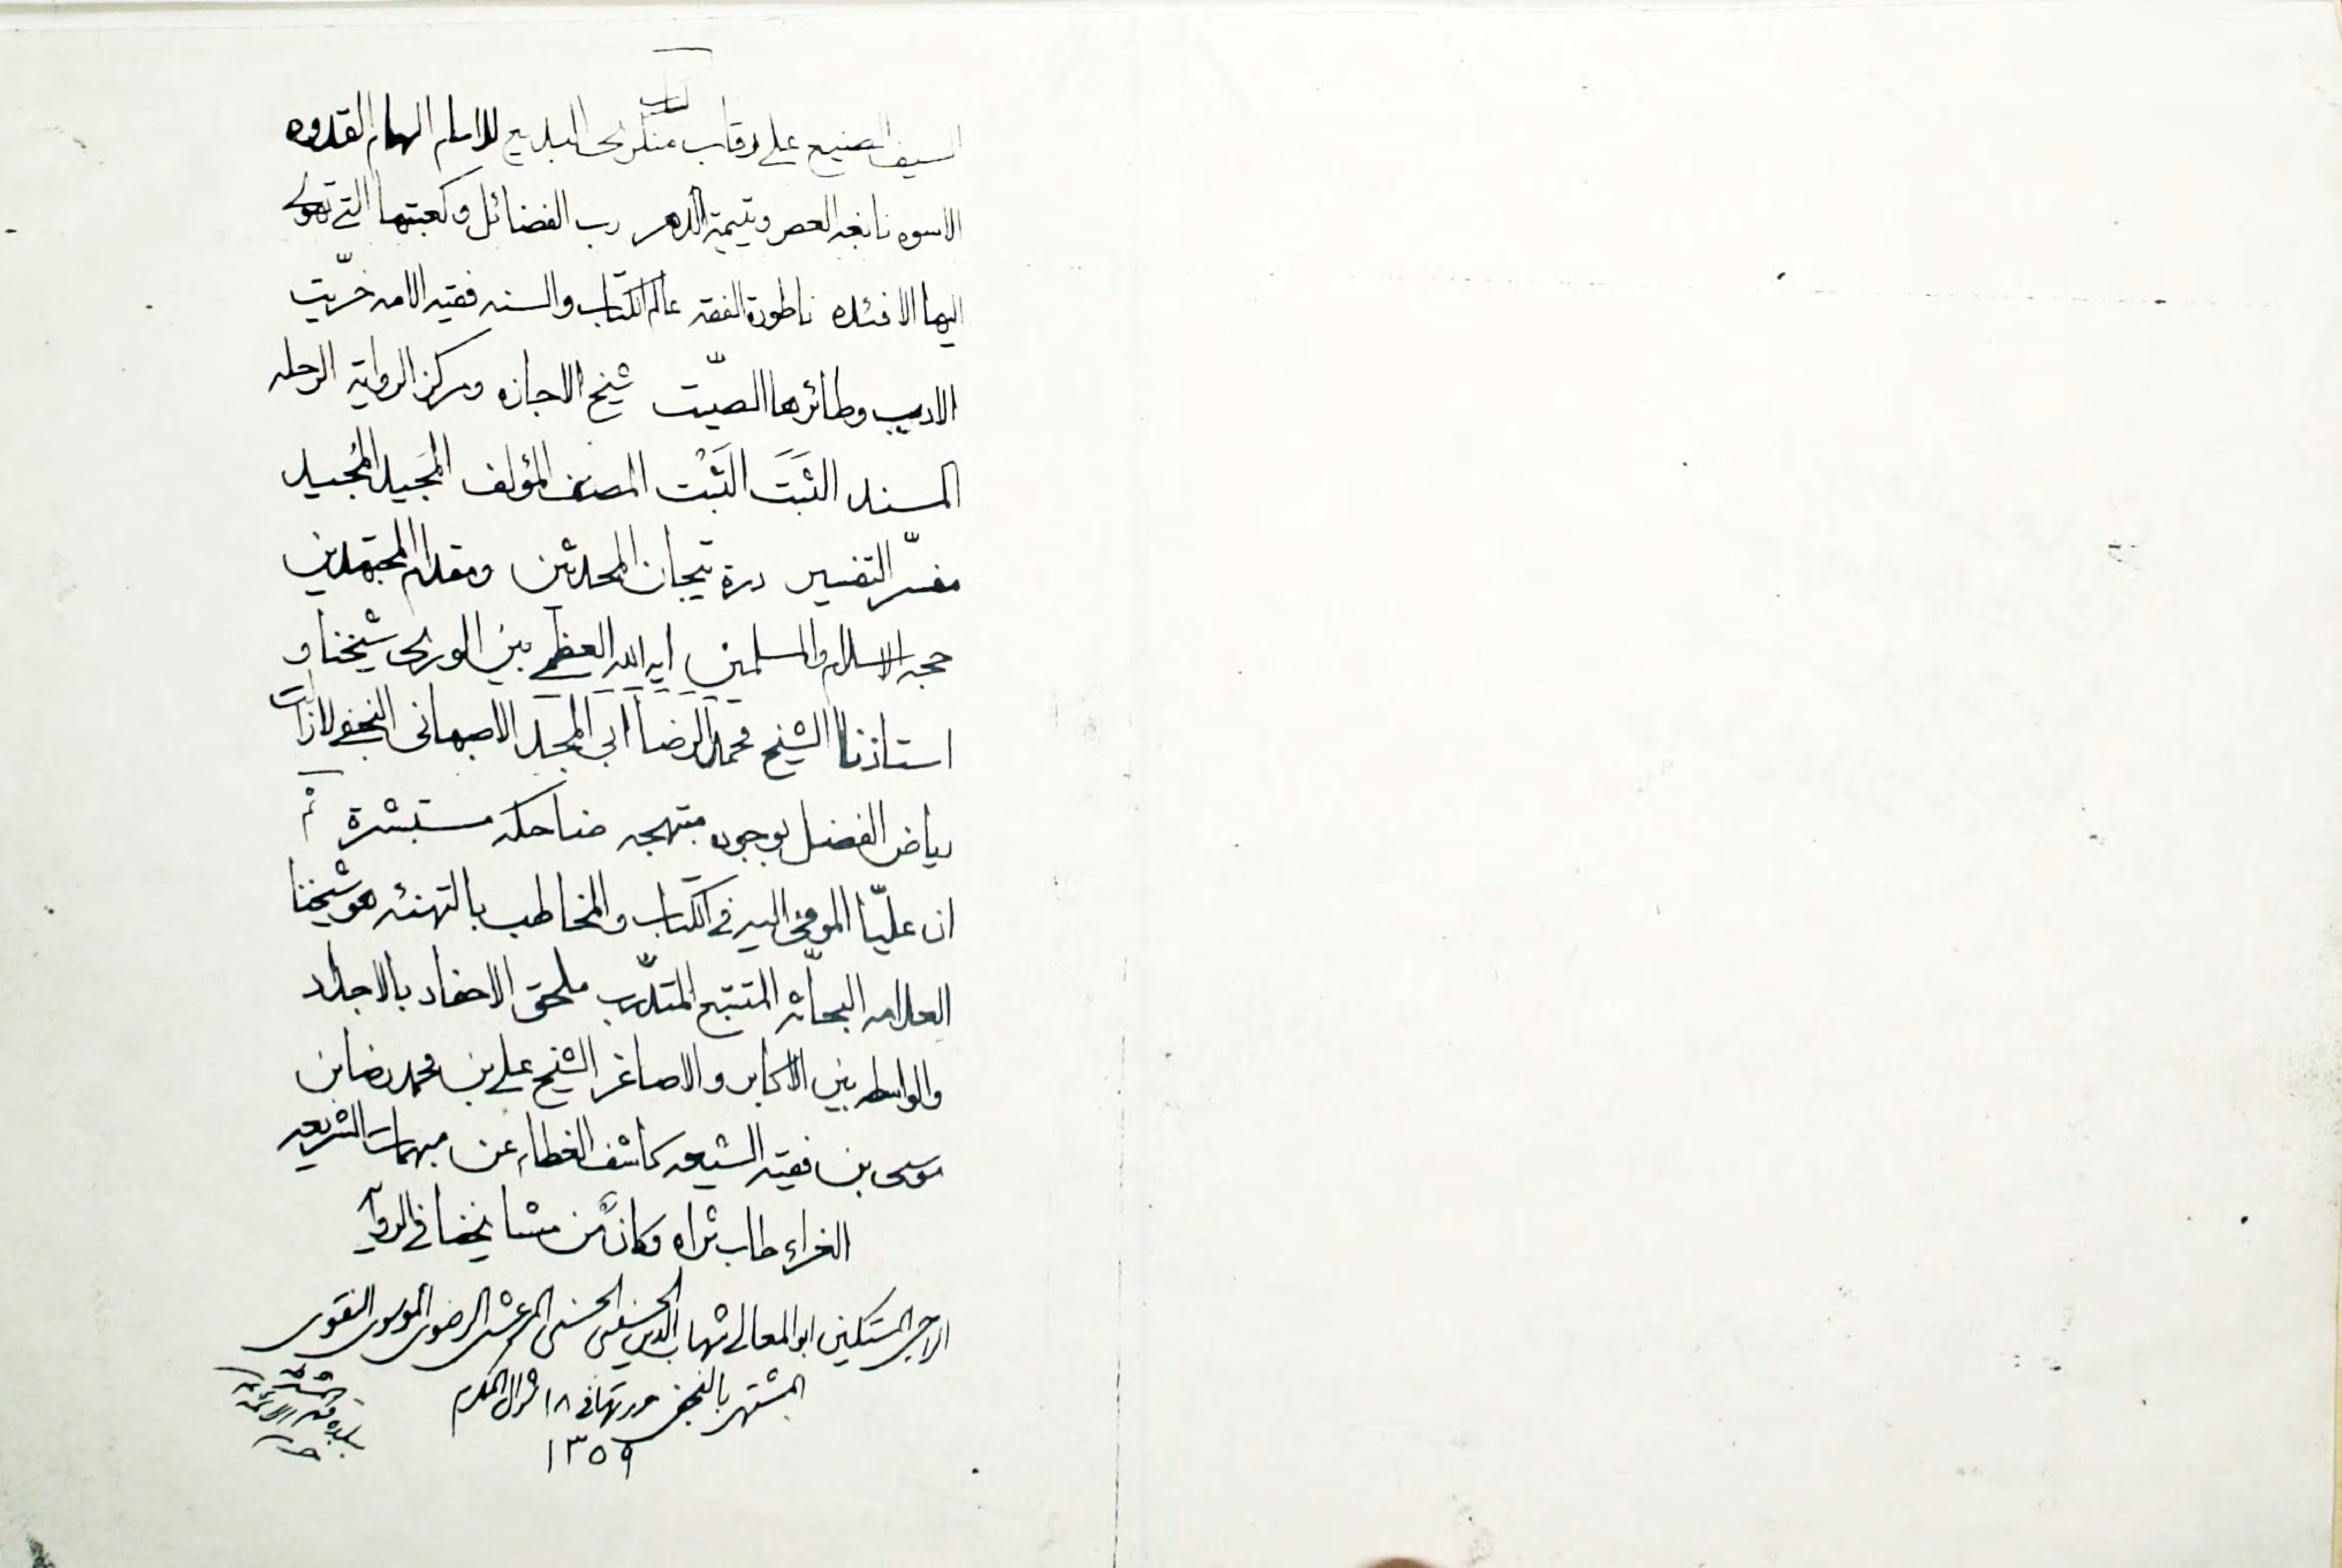 كتاب
السيف الصنيع على رقاب منكري البديع للامام الهمام القدوه
الاسوه نابغه العصر ويتيمة الدهر رب الفضائل وكعبتها التي تهوى
اليها الافئده ناطورة الفقه عالم الكتاب والسنه فقيه الامه خرّيت
الادب وطائرها الصيّت شيخ الاجازه ومركز الروايه الرحله
المسند الثَبَتَ الثَبْت المصنف المؤلف المَجيد المُجيد
مفسّر التفسير درة تيجان المحدثين ومقدام المجتهدين
حجه الاسلام والمسلمين ايه الله العظمى بين الورى شيخنا و
استاذنا الشيخ محمد الرضا ابى المجد الاصبهانى النجفى لازالت
رياض الفضل بوجوده مبتهجه ضاحكه مستبشرة ثم
ان عليّا المومى اليه في الكتاب والمخاطب بالتهنئه هو شيخنا
العلامه البحاثه المتتبع المتدرب ملحق الاحفاد بالاجداد
والواسطه بين الاكابر والاصاغر الشيخ على بن محمد رضا بن
موسى بن فقيه الشيعه كاشف الغطاء عن مبهمات الشريعه
الغراء طاب ثراه وكان من مشايخنا في الروايه
المستكين ابو المعالى شهاب الدين الحسينى الحسنى المرعشى الرضوى الموسوى التقوى
المشتهر بالنجفى في ١٨ شوال المكرم
١٣٥٩
ببلدة قم المشرفه
الائمه